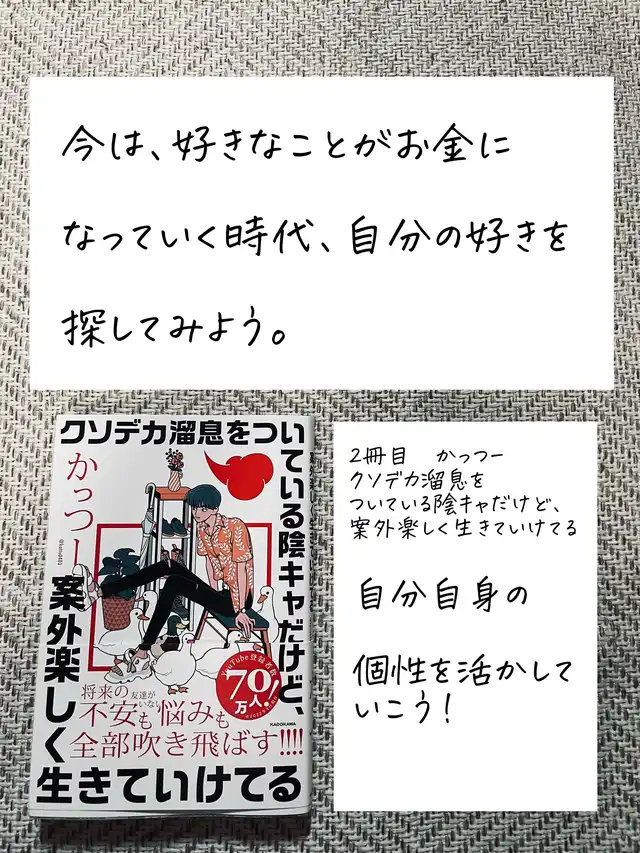 今は、好きなことがお金に
なっていく時代、自分の好きを
探してみよう。
クソデカ溜息をついている陰キャだけど、
案外楽しく
生きていけてる
かっつー
YouTube登録者数
70
万人!
将来の
不安も
友達が
いない
悩みも
全部吹き飛ばす!!!!
KADOKAWA
2冊目 かっつー
クソデカ溜息を
ついている陰キャだけど、
案外楽しく生きていけてる
自分自身の
個性を活かして
いこう!